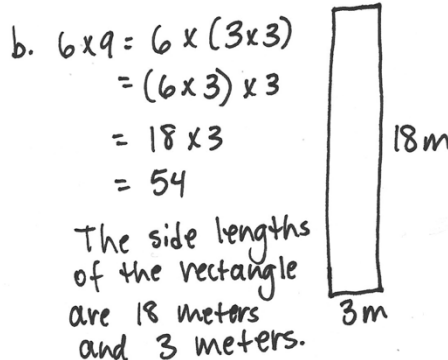 b. 6 x 9 = 6 x (3x3)
= (6 x 3) x 3
= 18 x 3
= 54
The side lengths
of the rectangle
are 18 meters
and 3 meters.
18 m
3 m